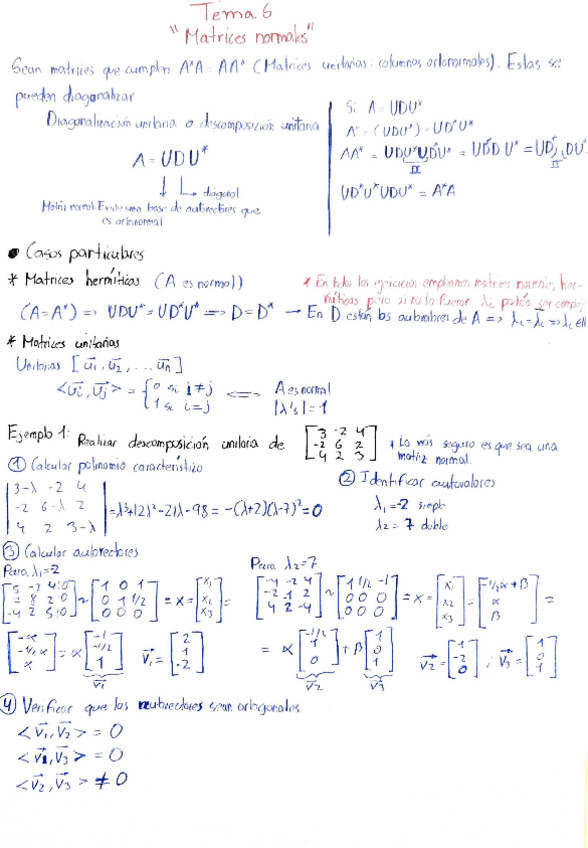 Tema 6
"Matrices normales"
Sean matrices que cumplen A*A = AA* (Matrices unitarias: columnas ortonormales). Estas se
pueden diagonalizar
Diagonalización unitaria o descomposición unitaria
A = UDU*
diagonal
Matriz normal. Existe una base de autovectores que
es ortonormal
Si A = UDU*
A* = (UDU*) = UD*U*
AA* = UDU*UD*U* = UDD*U* = UD*
UD*U*UDU* = A*A
● Casos particulares
* Matrices hermíticas (A es normal)
(A=A*) => UDU* = UD*U* => D = D* → En D están los autovalores de A => λi = λi => λi
* En todos los ejercicios empleamos matrices normales her-
míticas pero si no lo fueran λi podría ser complej
* Matrices unitarias
Unitarias [u1, u2, ... un]
<ui, uj> = { 0 si i≠j
1 si i=j
<= A es normal
|λ's| = 1
Ejemplo 1: Realizar descomposición unitaria de
[3 -2 4
-2 6 2
4 2 3]
* Lo más seguro es que sea una
matriz normal.
① Calcular polinomio característico
|3-λ -2 4
-2 6-λ 2
4 2 3-λ|
= -λ³+12λ²-21λ-98 = -(λ+2)(λ-7)² = 0
② Identificar autovalores
λ1 = -2 simple
λ2 = 7 doble
③ Calcular autovectores
Para λ1=2
[5 -2 4:0
2 8 2 0
-4 2 5:0] ~ [1 0 1
0 1 1/2
0 0 0] = x = [x1
x2
x3] =
[-α
-1/2 α
α] = α [-1
-1/2
1] v1 = [2
1
-2]
v1
Para λ2=7
[-4 -2 4
-2 -1 2
4 2 -4] ~ [1 1/2 -1
0 0 0
0 0 0] = x = [x1
x2
x3] = [-1/2α + β
α
β] =
= α [-1/2
1
0] + β [1
0
1] v2 = [1
-2
0], v3 = [1
0
1]
v2 v3
④ Verificar que los autovectores sean ortogonales
<v1, v2> = 0
<v1, v3> = 0
<v2, v3> ≠ 0